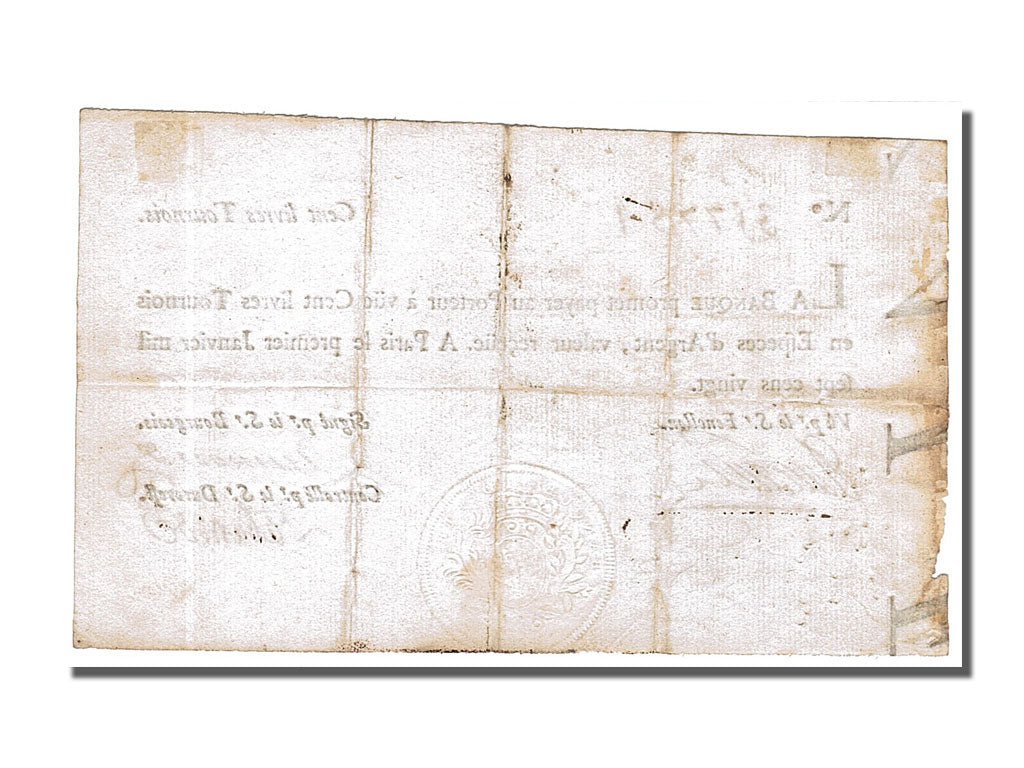 N°. Cent livres Tournois.
LA BANQUE promet payer au Porteur à vüe Cent livres Tournois
en Especes d'Argent, valeur reçeüe. A Paris le premier Janvier mil
sept cens vingt.
Vû p.r le S.r Fenellon. Signé p.r le S.r Bourgeois.
Controllé p.r le S.r Durevest.